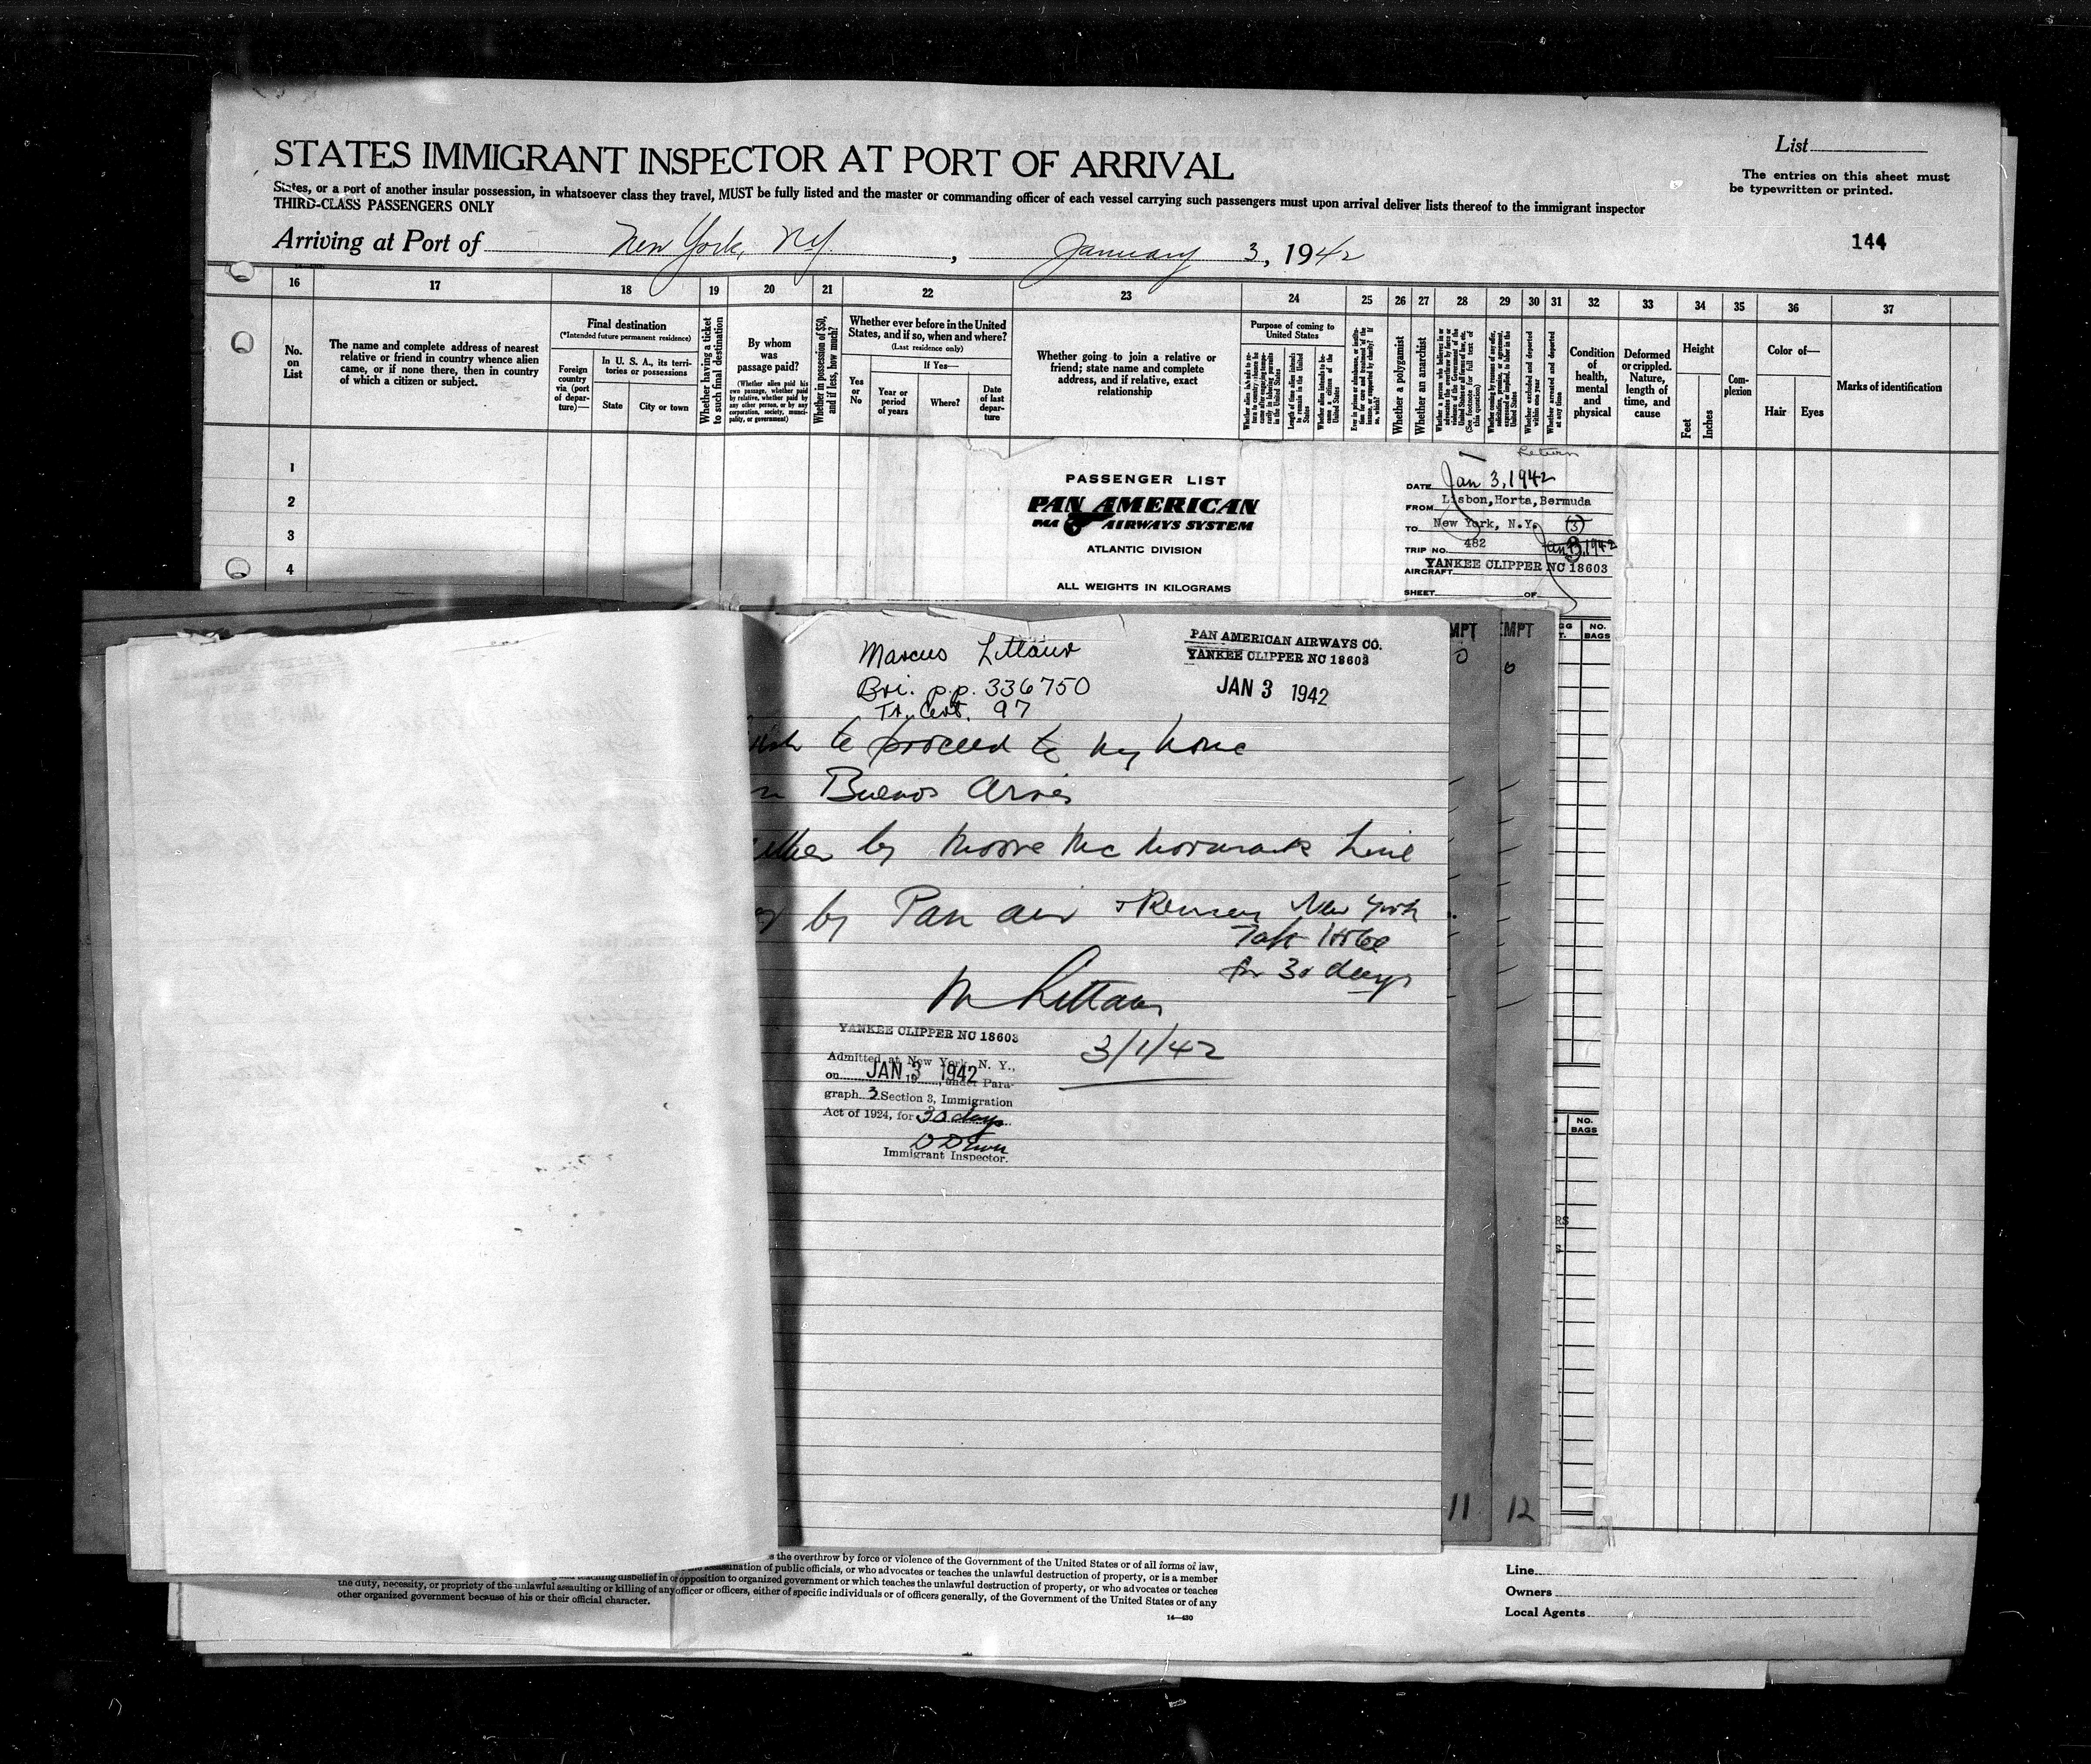 List
STATES IMMIGRANT INSPECTOR AT PORT OF ARRIVAL
The entries on this sheet must
be typewritten or printed.
States, or a port of another insular possession, in whatsoever class they travel, MUST be fully listed and the master or commanding officer of each vessel carrying such passengers must upon arrival deliver lists thereof to the immigrant inspector
THIRD-CLASS PASSENGERS ONLY
Arriving at Port of New York, N.Y., January 3, 1942
144
16 17 18 19 20 21 22 23 24 25 26 27 28 29 30 31 32 33 34 35 36 37
No.
on
List
The name and complete address of nearest
relative or friend in country whence alien
came, or if none there, then in country
of which a citizen or subject.
Final destination
(*Intended future permanent residence)
Foreign
country
via (port
of depar-
ture)—
In U. S. A., its terri-
tories or possessions
State
City or town
Whether having a ticket
to such final destination
By whom
was
passage paid?
(Whether alien paid his
own passage, whether paid
by relative, whether paid by
any other person, or by any
corporation, society, munici-
pality, or government)
Whether in possession of $50,
and if less, how much?
Whether ever before in the United
States, and if so, when and where?
(Last residence only)
Yes
or
No
If Yes—
Year or
period
of years
Where?
Date
of last
depar-
ture
Whether going to join a relative or
friend; state name and complete
address, and if relative, exact
relationship
Purpose of coming to
United States
Length of time alien intends
to remain in the United
States
Whether alien intends to be-
come a citizen of the
United States
Whether a polygamist
Whether an anarchist
Whether arrested and deported
at any time
Condition
of
health,
mental
and
physical
Deformed
or crippled.
Nature,
length of
time, and
cause
Height
Feet
Inches
Com-
plexion
Color of—
Hair
Eyes
Marks of identification
1
2
3
4
PASSENGER LIST
PAN AMERICAN
PAA AIRWAYS SYSTEM
ATLANTIC DIVISION
ALL WEIGHTS IN KILOGRAMS
Return
DATE Jan 3, 1942
FROM Lisbon, Horta, Bermuda
TO New York, N.Y. (3)
TRIP NO. 482
AIRCRAFT YANKEE CLIPPER NC 18603
SHEET OF
NO.
BAGS
Marcus Littaur
Bri. p.p. 336750
Tr. Cert. 97
PAN AMERICAN AIRWAYS CO.
YANKEE CLIPPER NC 18603
JAN 3 1942
to proceed to my home
Buenos Aires
by Moore McCormack Line
by Pan air
New York
Taft Hotel
for 30 days
M Littaur
3/1/42
YANKEE CLIPPER NC 18603
Admitted at New York, N. Y.,
on JAN 3 1942 19, under Para-
graph 3 Section 3, Immigration
Act of 1924, for 30 days
Immigrant Inspector.
EMPT
0
0
NO.
BAGS
11 12
s the overthrow by force or violence of the Government of the United States or of all forms of law,
assassination of public officials, or who advocates or teaches the unlawful destruction of property, or is a member
teaching disbelief in or opposition to organized government or which teaches the unlawful destruction of property, or who advocates or teaches
the duty, necessity, or propriety of the unlawful assaulting or killing of any officer or officers, either of specific individuals or of officers generally, of the Government of the United States or of any
other organized government because of his or their official character.
14—430
Line
Owners
Local Agents